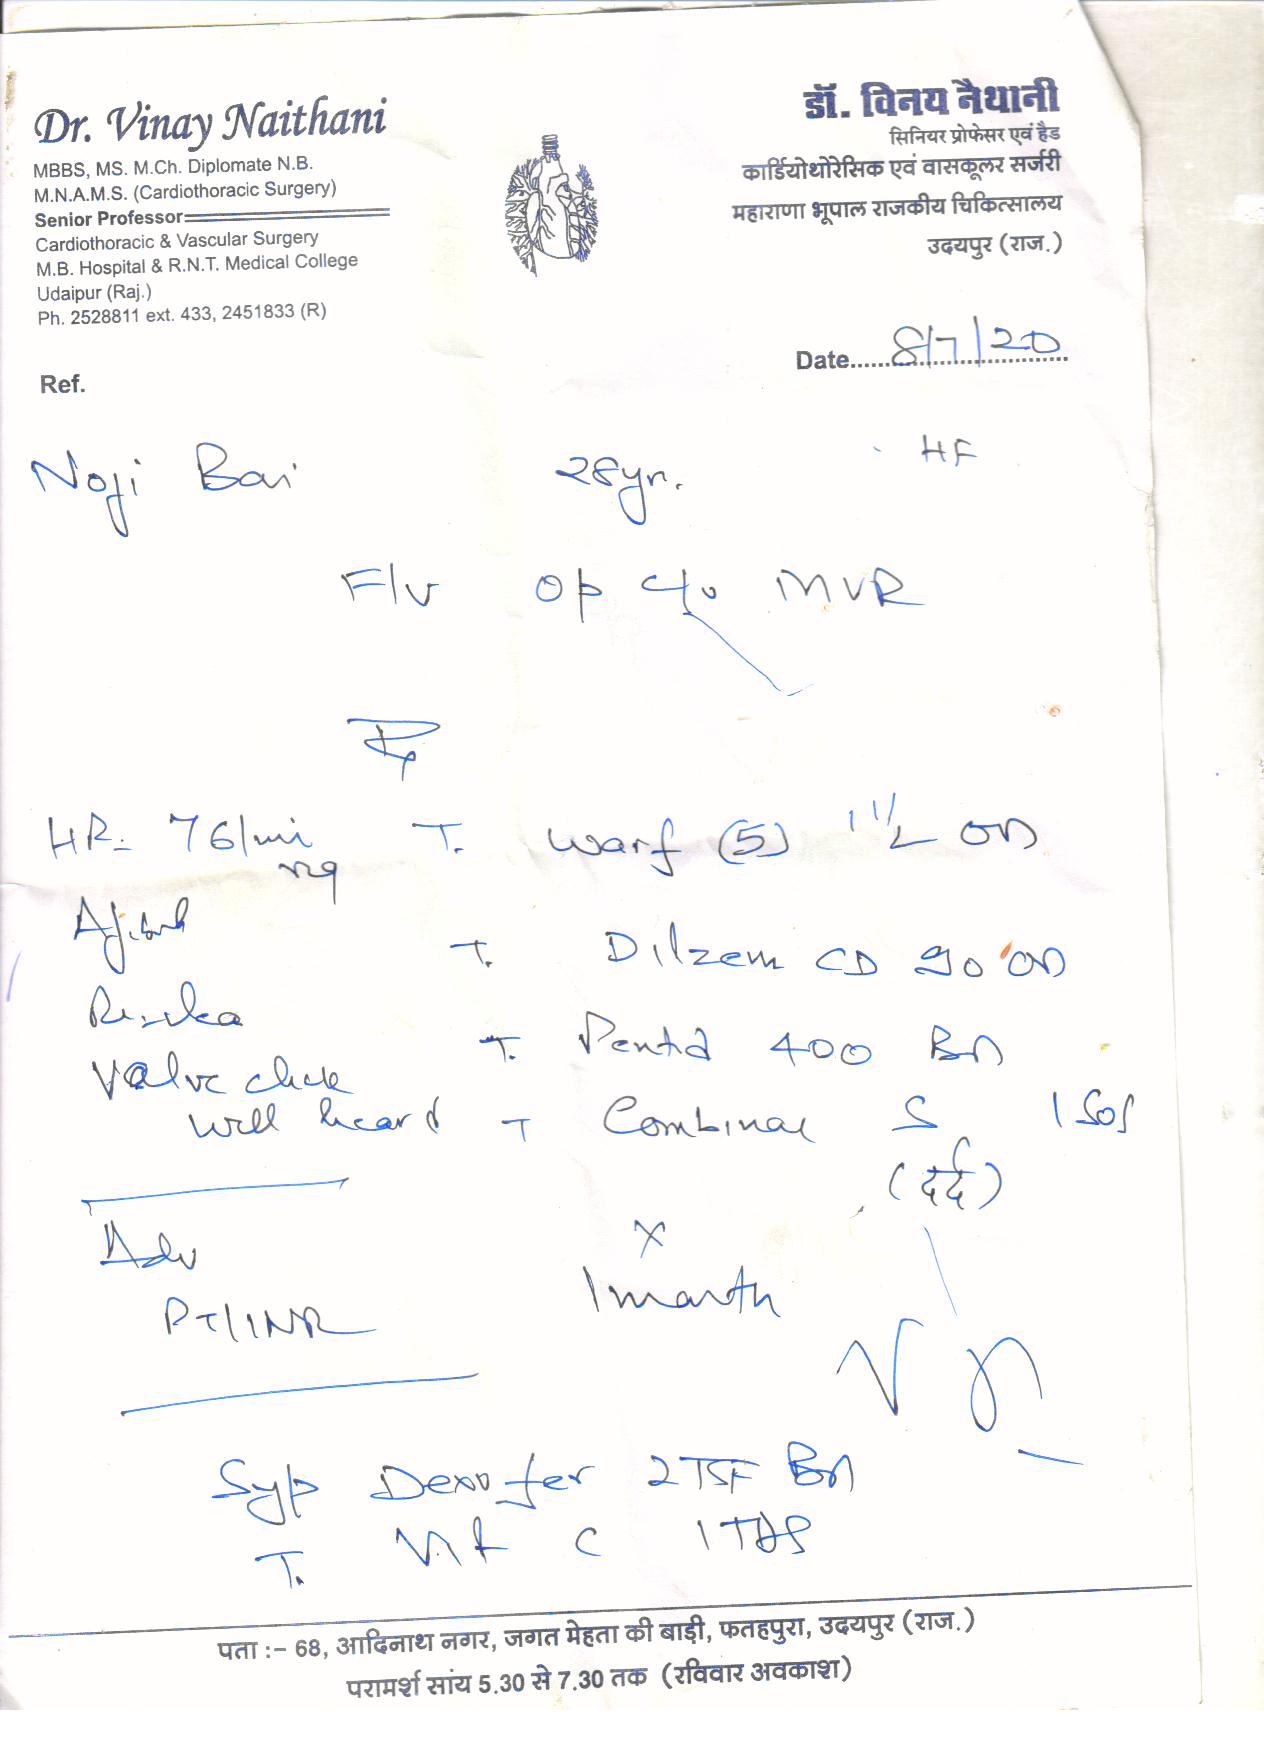 Dr. Vinay Naithani
MBBS, MS. M.Ch. Diplomate N.B.
M.N.A.M.S. (Cardiothoracic Surgery)
Senior Professor
Cardiothoracic & Vascular Surgery
M.B. Hospital & R.N.T. Medical College
Udaipur (Raj.)
Ph. 2528811 ext. 433, 2451833 (R)
डॉ. विनय नैथानी
सिनियर प्रोफेसर एवं हैड
कार्डियोथोरेसिक एवं वासकूलर सर्जरी
महाराणा भूपाल राजकीय चिकित्सालय
उदयपुर (राज.)
Date...... 8/7/20
Ref.
Noji Bai 28yr. HF
F/U Op c/o MVR
HR- 76/min T. Warf (5) 1 1/2 OD
T. Dilzem CD 90 OD
T. 400 BD
Valve click
Well heard T Combinac S 1 SOS
(दर्द)
Adv
PT/INR
x
1 month
Syp Dexofer 2TSF BD
T. Vit C 1 TDS
पता :- 68, आदिनाथ नगर, जगत मेहता की बाड़ी, फतहपुरा, उदयपुर (राज.)
परामर्श सांय 5.30 से 7.30 तक (रविवार अवकाश)